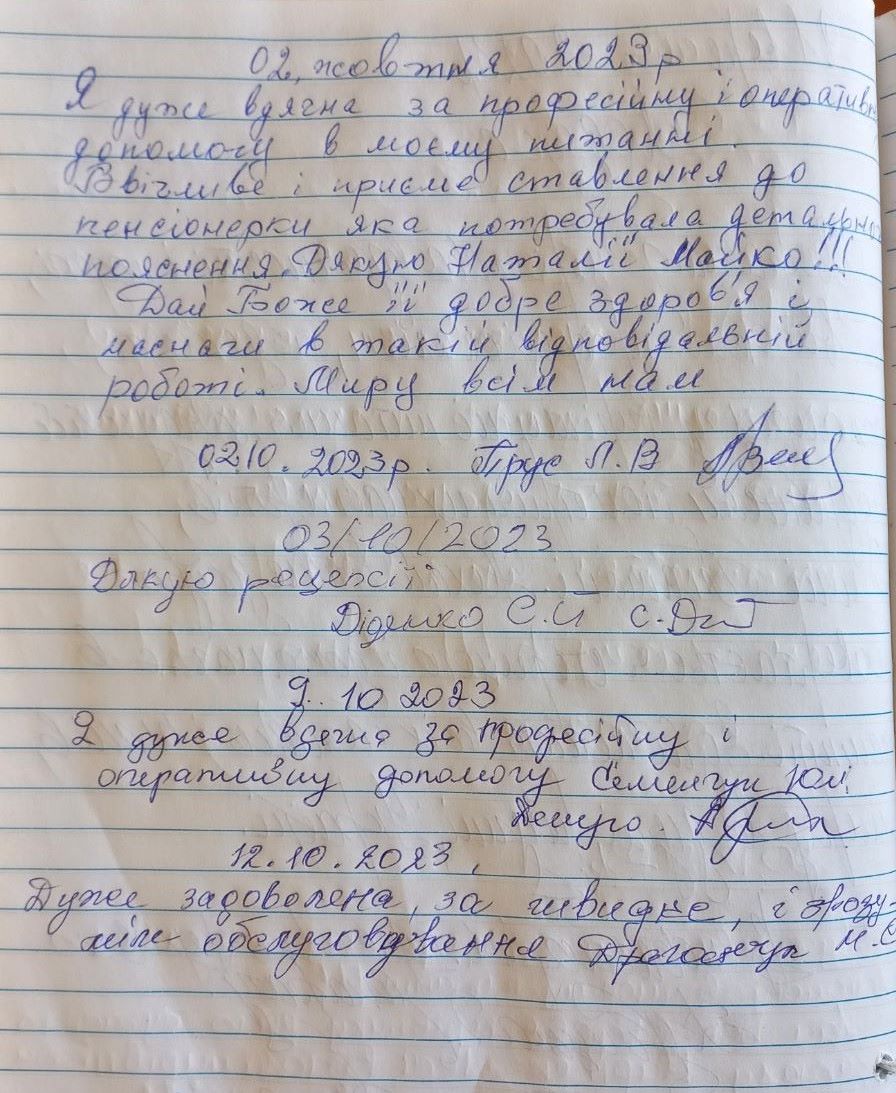 02 жовтня 2023р
Я дуже вдячна за професійну і оперативну
допомогу в моєму питанні.
Ввічливе і приємне ставлення до
пенсіонерки яка потребувала детально
пояснення. Дякую Наталії Майко!!!
Дай Боже її добре здоров'я і
наснаги в такій відповідальній
роботі. Миру всім нам
02.10.2023р. Прус Л.В
03/10/2023
Дякую рецепсії
Діденко Є.Й
9.10 2023
Я дуже вдячна за професійну і
оперативну допомогу Семенчук Юлі
12.10.2023,
Дуже задоволена, за швидке, і зрозу-
міле обслуговування